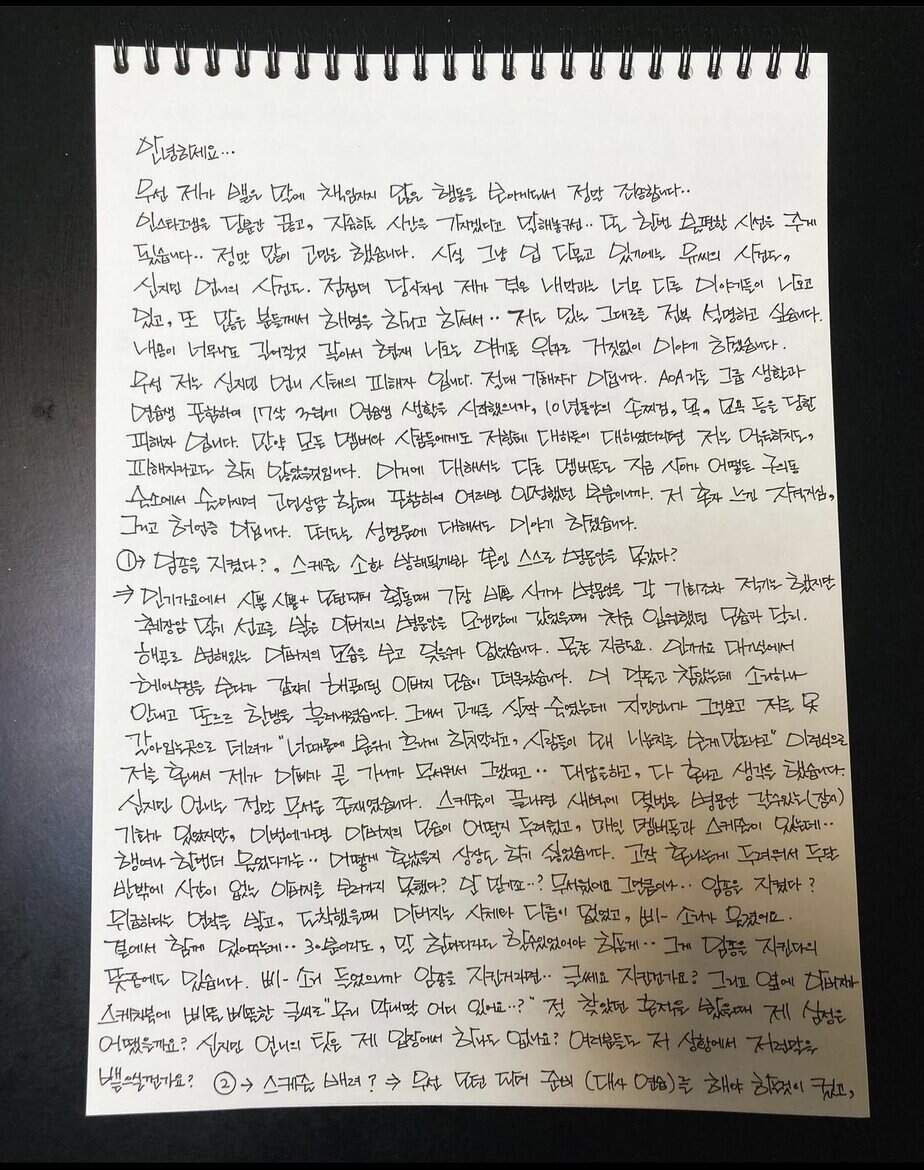 안녕하세요...
우선 제가 뱉은 말에 책임지지 않은 행동을 보여드려서 정말 죄송합니다..
인스타그램을 당분간 끊고, 자숙하는 시간을 가지겠다고 말해놓구선.. 또 한번 불편한 시선을 주게
됐습니다.. 정말 많이 고민을 했습니다. 사실 그냥 입 다물고 있기에는 유씨의 사건도,
신지민 언니의 사건도. 점점더 당사자인 제가 겪은 내막과는 너무 다른 이야기들이 나오고
있고, 또 많은 분들께서 해명을 하라고 하셔서.. 저도 있는 그대로를 전부 설명하고 싶습니다.
내용이 너무나도 길어질것 같아서 현재 나오는 얘기들 위주로 거짓없이 이야기 하겠습니다.
우선 저는 신지민 언니 사태의 피해자 입니다. 절대 가해자가 아닙니다. AOA라는 그룹 생활과
연습생 포함하여 17살 3월에 연습생 생활을 시작했으니까, 10년동안의 손찌검, 욕, 모욕 등을 당한
피해자 입니다. 만약 모든 멤버와 사람들에게도 저한테 대하듯이 대하였더라면 저는 억울하지도,
피해자라고도 하지 않았을것입니다. 여기에 대해서는 다른 멤버들도 지금 사이가 어떻든 우리들
숙소에서 술마시며 고민상담 할때 포함하여 여러번 인정했던 부분이니까. 저 혼자 느낀 자격지심,
그리고 허언증 아닙니다. 떠도는 성명문에 대해서도 이야기 하겠습니다.
① → 임종을 지켰다?, 스케줄 소화 방해될까봐 본인 스스로 병문안을 못갔다?
⇒ 인기가요에서 사뿐사뿐 + 모던파머 활동때 가장 바쁜 시기라 병문안을 갈 기회조차 적기는 했지만
췌장암 말기 선고를 받은 아버지의 병문안을 오랜만에 갔었을때 처음 입원했던 모습과 달리.
해골로 변해있는 아버지의 모습을 보고 잊을수가 없었습니다. 물론 지금도요. 인기가요 대기실에서
헤어수정을 받다가 갑자기 해골이된 아버지 모습이 떠올랐습니다. 이 악물고 참았는데 소리하나
안내고 또르르 한방울 흘러내렸습니다. 그래서 고개를 살짝 숙였는데 지민언니가 그걸보고 저를 옷
갈아입는곳으로 데려가 "너때문에 분위기 흐리게 하지말라고, 사람들이 왜 니눈치를 보게만드냐고" 이런식으로
저를 혼내서 제가 아빠가 곧 가니까 무서워서 그랬다고.. 대답을하고, 다 혼나고 생각을 했습니다.
신지민 언니는 정말 무서운 존재였습니다. 스케줄이 끝나면 새벽에 몇번은 병문안 갈수있는(잠시)
기회가 있었지만, 이번에가면 아버지의 모습이 어떨지 두려웠고, 매일 멤버들과 스케줄이 있는데..
행여나 한번더 울었다가는.. 어떻게 혼났을지 상상도 하기 싫었습니다. 고작 혼나는게 두려워서 두달
반밖에 시간이 없는 아버지를 보러가지 못했다? 안 믿기죠..? 무서웠어요 그만큼이나.. 임종을 지켰다?
위급하다는 연락을 받고, 도착했을때 아버지는 시체와 다름이 없었고, 삐- 소리가 울렸어요.
곁에서 함께 있어주는게.. 30분이라도, 말 한마디라도 할수있었어야 하는게.. 그게 임종을 지킨다의
뜻중에도 있습니다. 삐- 소리 들었으니까 임종을 지킨거라면.. 글쎄요 지킨건가요? 그리고 옆에 아버지가
스케치북에 삐뚤, 삐뚤한 글씨로 "우리 막내딸 어디 있어요..?" 절 찾았던 흔적을 봤을때 제 심정은
어땠을까요? 신지민 언니의 탓은 제 입장에서 하나도 없나요? 여러분들도 저 상황에서 저런말을
뱉으실건가요? ② → 스케줄 배려? ⇒ 우선 모던 파머 준비 (대사 연습)를 해야 하는것이 컸고,